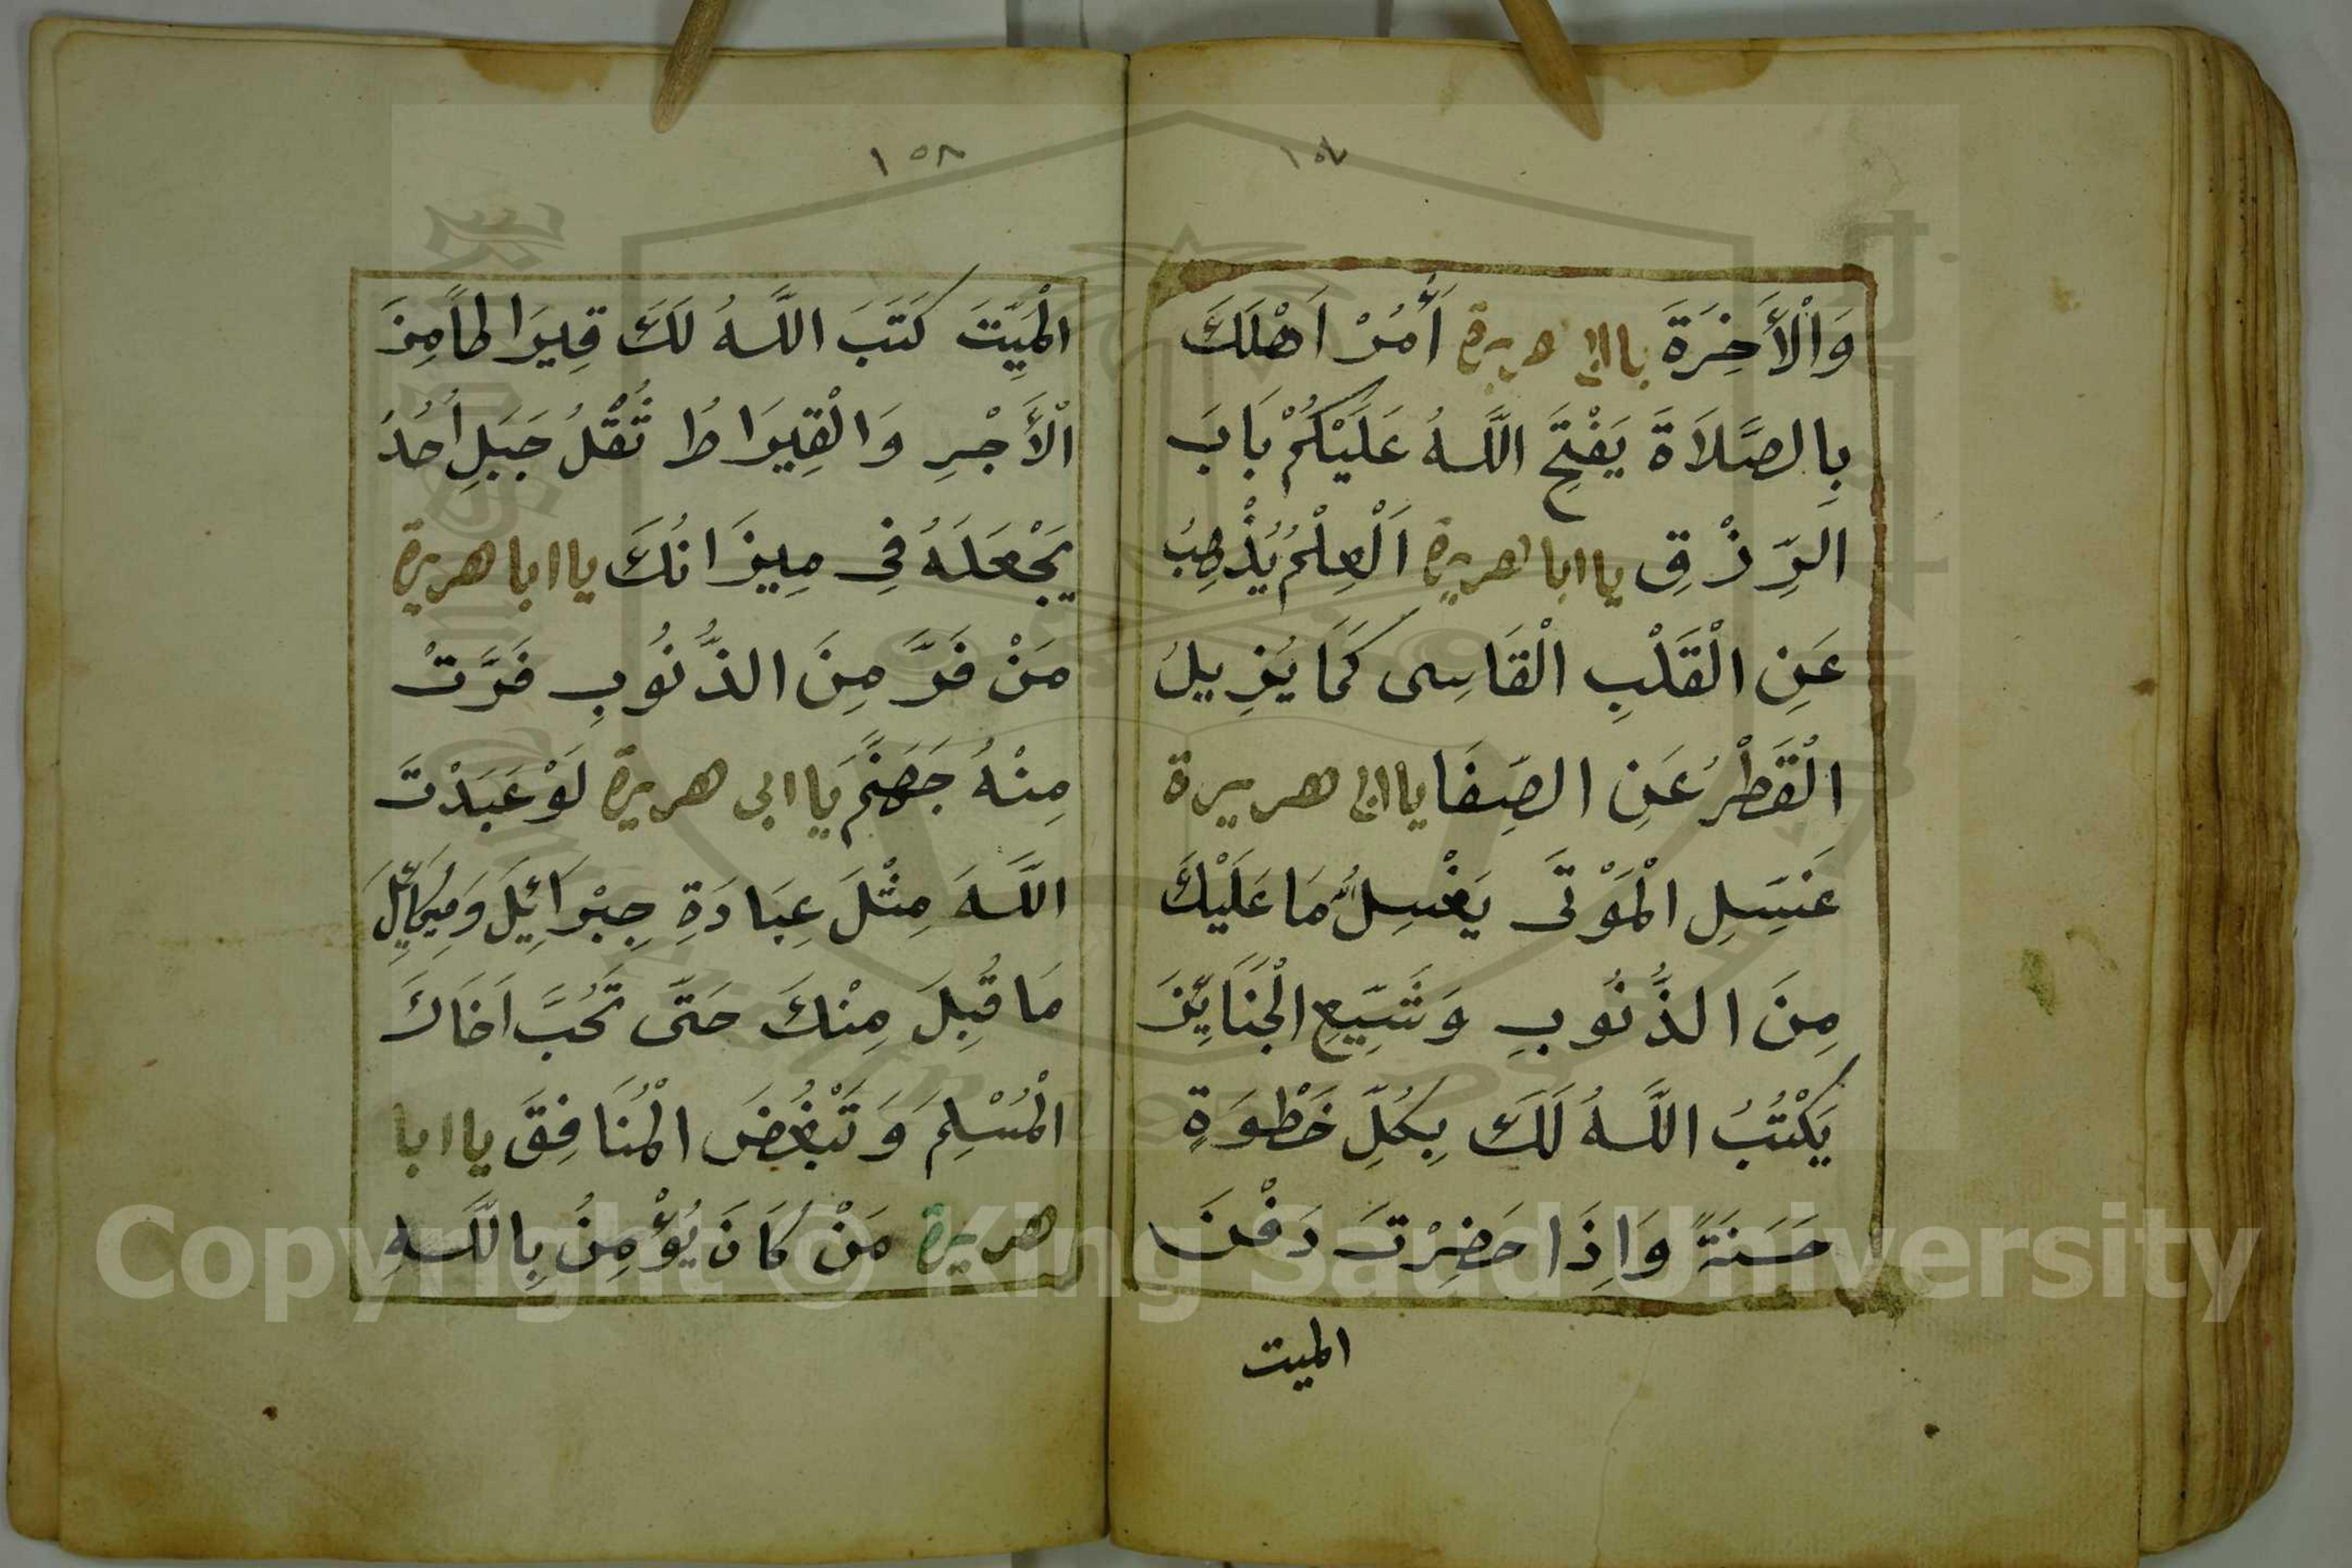 ١٥٧
وَالْأَخِرَةَ يا ابى هريرة أَمُرْ اَهْلَكَ
بِالصَّلَاةَ يَفْتَحِ اللَّهُ عَلَيْكُمْ بَابَ
الرِّزْقِ يا ابا هريرة اَلْعِلْمُ يُذْهِبُ
عَنِ الْقَلْبِ الْقَاسِى كَمَا يُزِيلُ
الْقَطْرُ عَنِ الصَّفَا يا ابى هريرة
غَسِّلِ الْمَوْتَى يَغْسِلُ مَا عَلَيْكَ
مِنَ الذُّنُوبِ وَشَيِّعِ الْجَنَايِزَ
يَكْتُبُ اللَّهُ لَكَ بِكُلِّ خَطْوَةٍ
حَسَنَةً وَاِذَا حَضِرْتَ دَفْنَ
الميت
١٥٨
الْمَيِّتَ كَتَبَ اللَّهُ لَكَ قِيرَاطاً مِنَ
الْأَجْرِ وَالْقِيرَاطُ ثُقْلُ جَبَلِ اُحُدُ
يَجْعَلَهُ فِى مِيزَانُكَ يا ابا هريرة
مَنْ فَرَّ مِنَ الذُّنُوبِ فَرَّتْ
مِنْهُ جَهَنَّم يَا ابى هريرة لَوْ عَبَدْتَ
اللَّهَ مِثْلَ عِبَادَةِ جِبْرَائِيلَ وَمِيكَائِيلَ
مَا قُبِلَ مِنْكَ حَتَّى تَحُبَّ اَخَاكَ
الْمُسْلِمَ وَتَبْغُضَ الْمُنَافِقَ يا ابا
هريرة مَنْ كَانَ يُؤْمِنُ بِاللَّهِ
Copyright © King Saud University